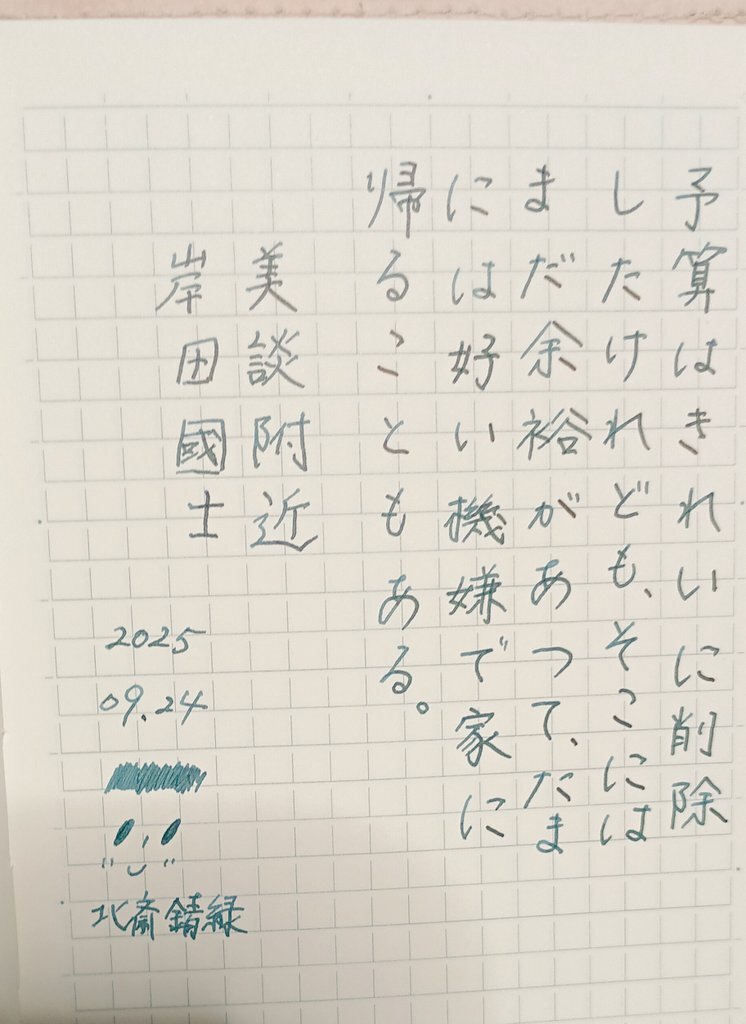 予算はきれいに削除
したけれども、そこには
まだ余裕があつて、たま
には好い機嫌で家に
帰ることもある。
美談附近
岸田國士
2025
09.24
北斎錆緑